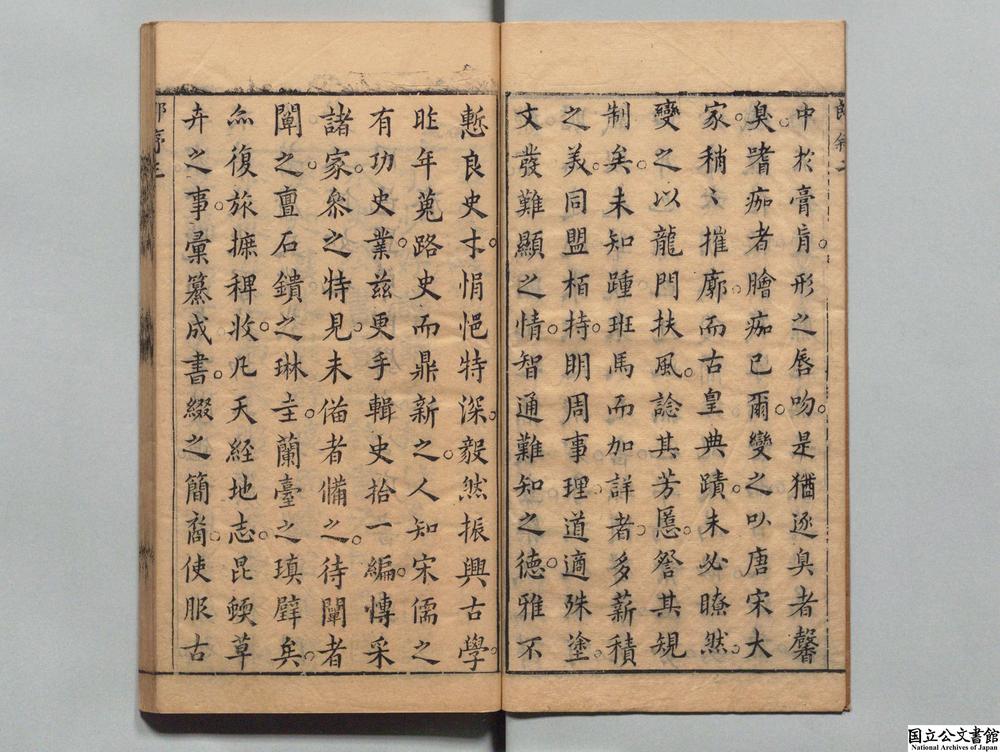 中於膏肓。形之唇吻。是猶逐臭者馨
臭。嗜痂者膾痂已爾。變之以唐宋大
家。稍〻摧廓。而古皇典蹟。未必瞭然。
變之以龍門扶風。諗其芳慝。詧其規
制矣。未知踵班馬而加詳者。多薪積
之美。同盟栢持。明周事理。道適殊塗。
文發難顯之情。智通難知之德。雅不
慙良史才。悁悒特深。毅然振興古學。
昨年蒐路史而鼎新之。人知宋儒之
有功史業。茲更手輯史拾一編。慱采
諸家。叅之特見。未偹者備之。待闡者
闡之。亶石鐀之琳圭。蘭臺之瑱璧矣。
亦復旅摭稗收。凡天經地志。昆蝡草
卉之事。彙纂成書。綴之簡裔。使服古
郎叙二
序三
国立公文書館
National Archives of Japan